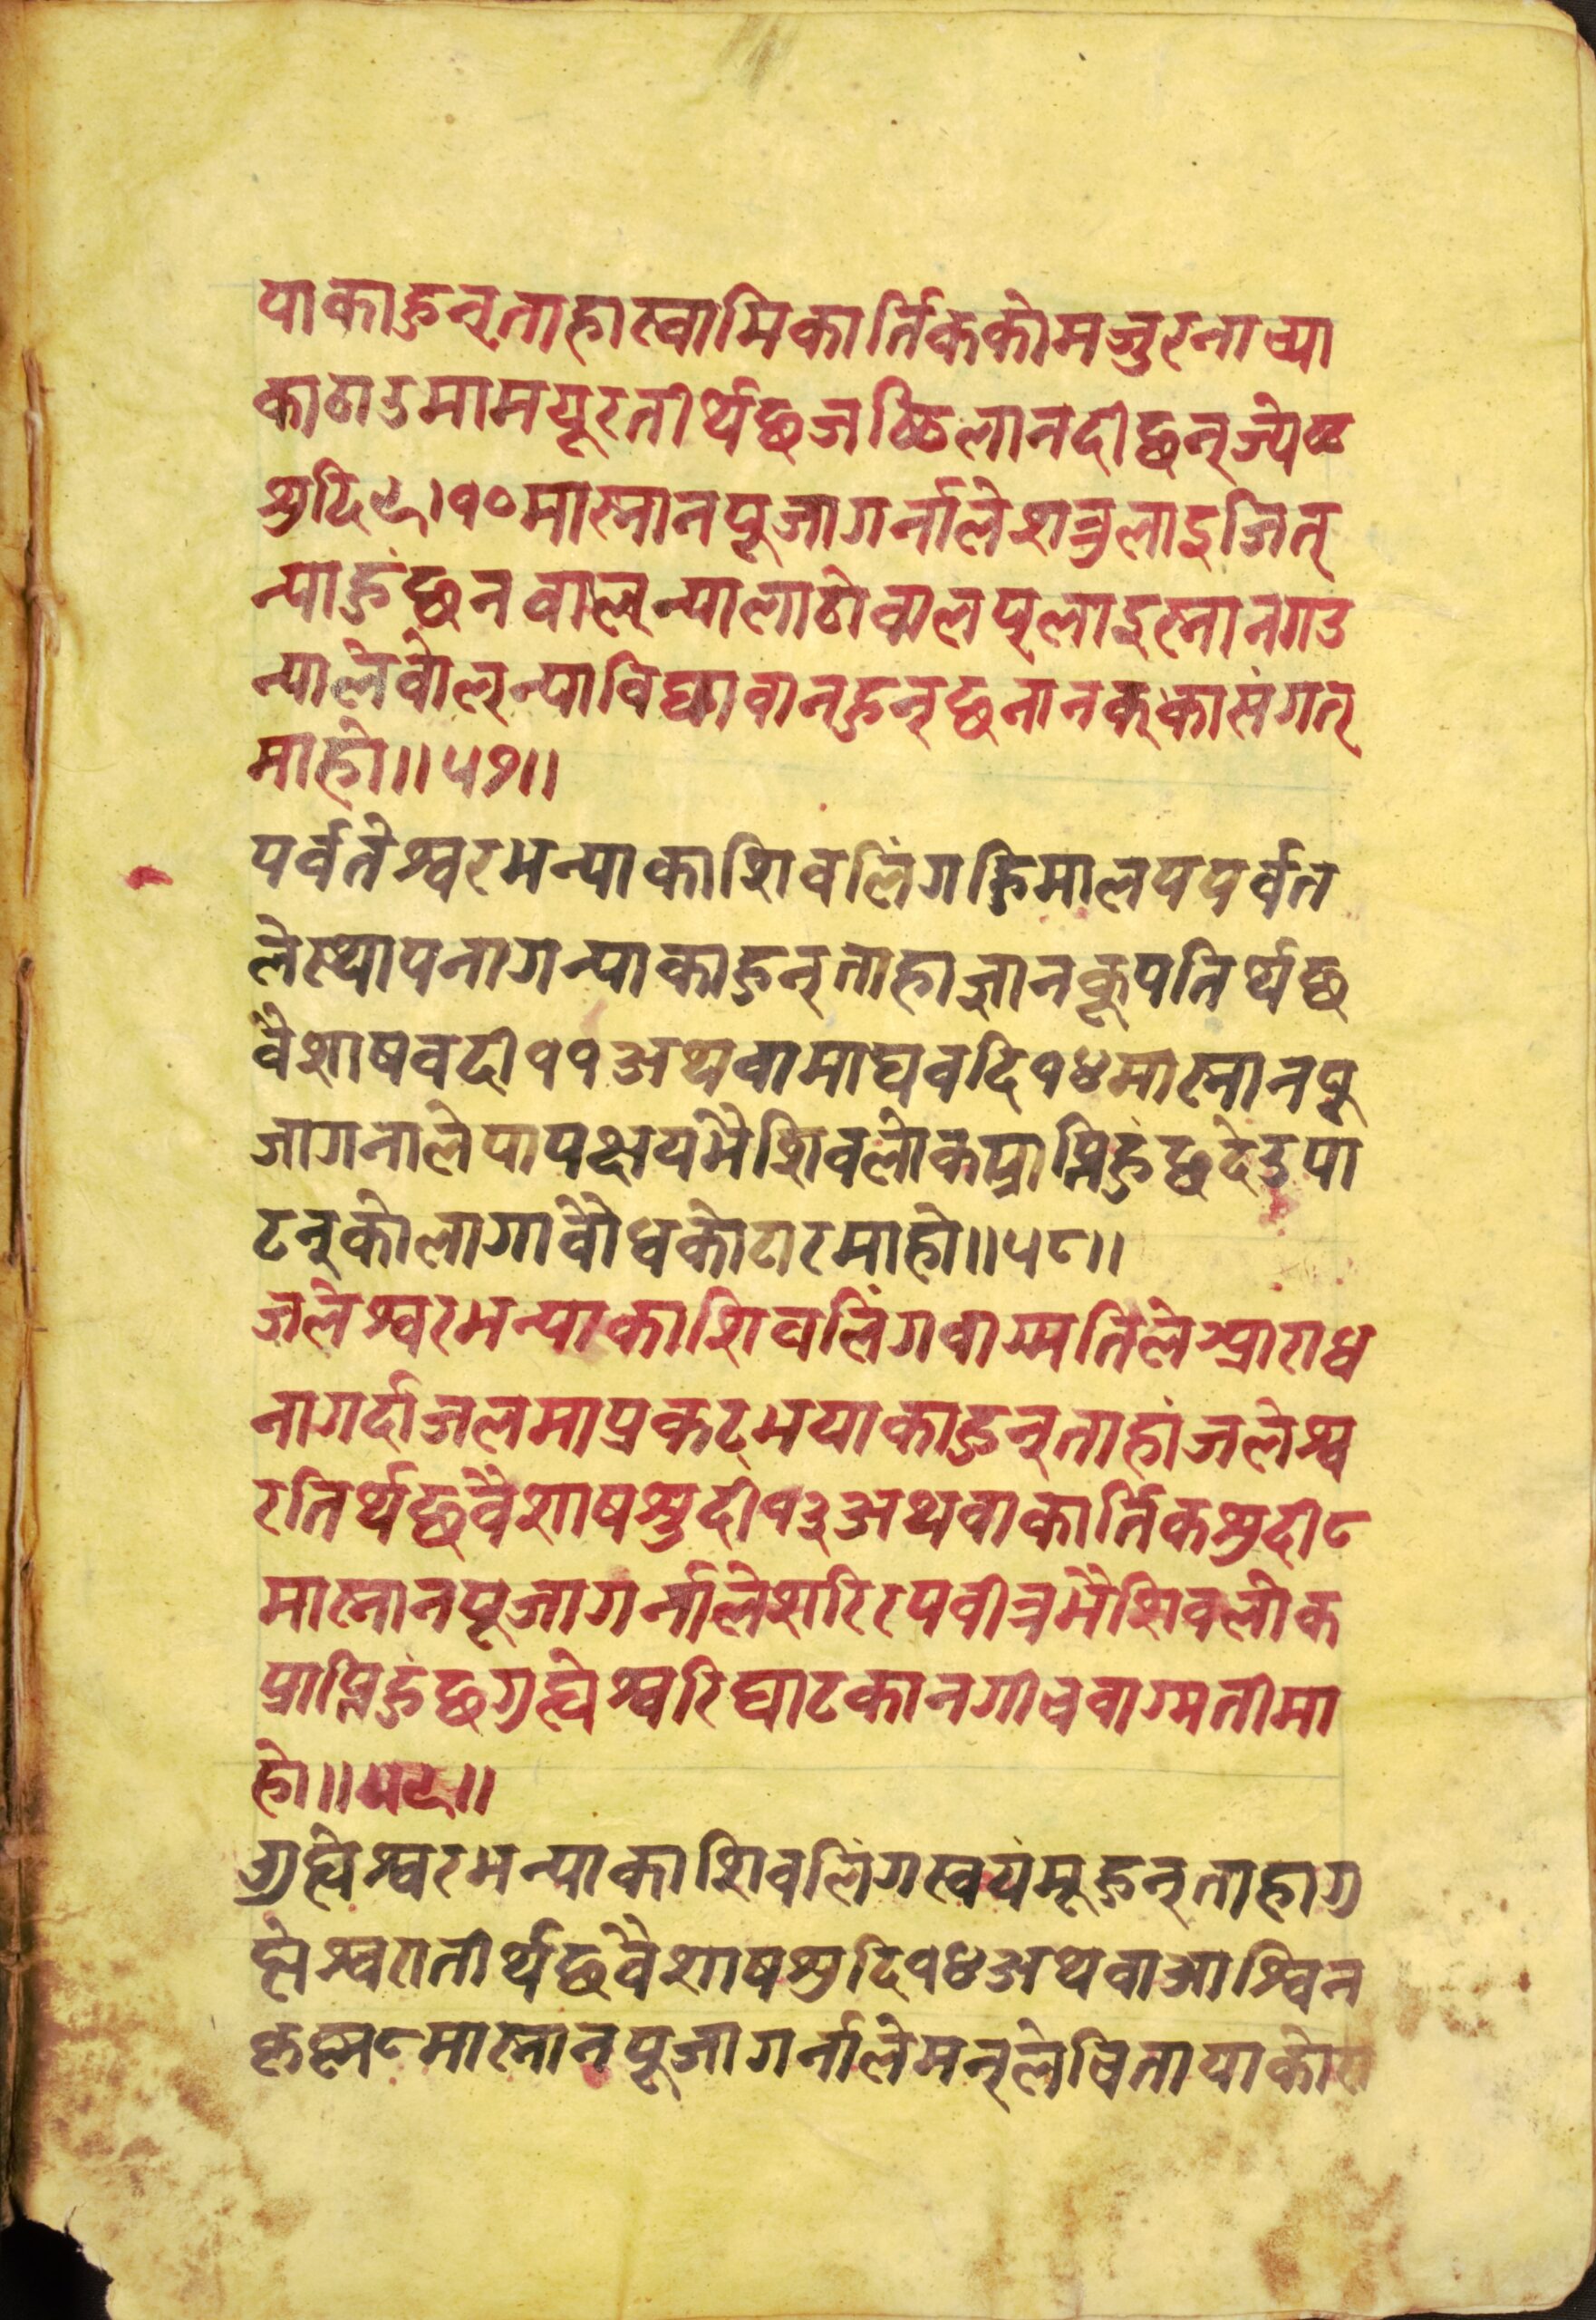 पाकाहुन्ताहास्वामिकार्तिककोमजुरनाच्या
काठाउमामयूरतीर्थछजठिलानदीछन्ज्येष्ठ
शुदि९।१०मास्नानपूजागर्नालेशत्रुलाइजित्
न्याहुंछनवाल्न्यालाटोवालष्लाइस्नानगउ
न्यालेवोल्न्याविद्यावान्हुन्छनानक्कासंगत्
माहो॥५७॥
पर्वतेश्वरभन्याकाशिवलिंगहिमालयपर्वत
लेस्थापनागन्याकाहुन्ताहाज्ञानकूपतिर्थछ
वैशाषवदी११अथवामाघवदि१४मास्नानपू
जागनालेपापक्षयभैशिवलोकप्राप्तिहुंछदेउपा
टन्कोलागावौधकोटारमाहो॥५८॥
जलेश्वरभन्याकाशिवलिंगवाग्मतिलेआराध
नागर्दाजलमाप्रकट्भयाकाहुन्ताहांजलेश्व
रतिर्थछवैशाषशुदी१३अथवाकार्तिकशुदी८
मास्नानपूजागर्नालेशरिरपवीत्रभैशिवलोक
प्राप्तिहुंछगुह्येश्वरिघाटकानगीचवाग्मतीमा
हो॥५९॥
गुह्येश्वरभन्याकाशिवलिंगस्वयंभूहुन्ताहागु
ह्येश्वरातीर्थछवैशाषशुदि१४अथवाआश्विन
कृष्ण८मास्नानपूजागर्नालेमन्लेचितायाको